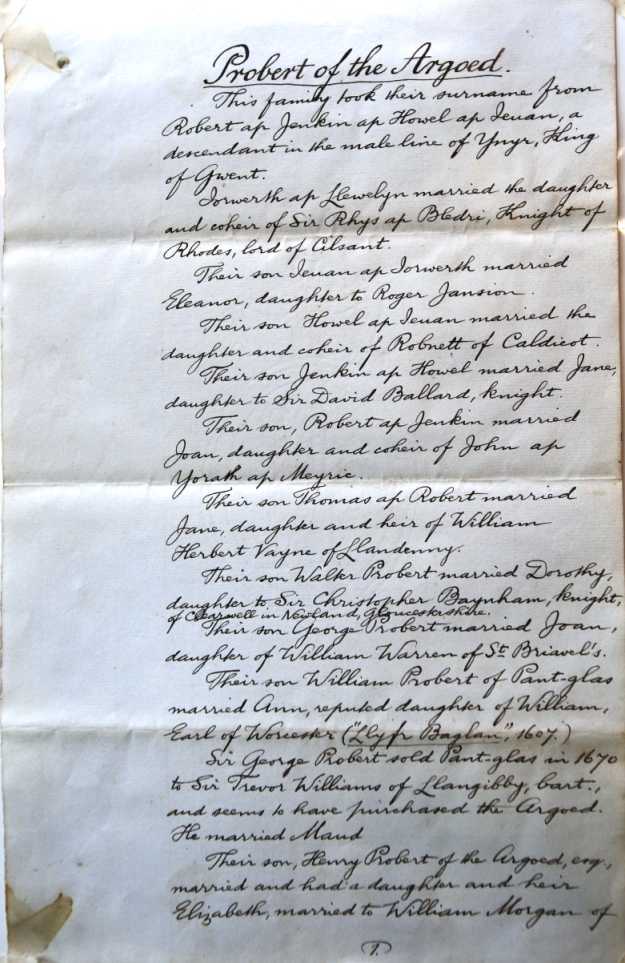 Probert of the Argoed.
This family took their surname from
Robert ap Jenkin ap Howel ap Ieuan, a
descendant in the male line of Ynyr, King
of Gwent.
Iorwerth ap Llewelyn married the daughter
and coheir of Sir Rhys ap Bledri, Knight of
Rhodes, lord of Cilsant.
Their son Ieuan ap Iorwerth married
Eleanor, daughter to Roger Jansion.
Their son Howel ap Ieuan married the
daughter and coheir of Robnett of Caldicot.
Their son Jenkin ap Howel married Jane,
daughter to Sir David Ballard, knight.
Their son, Robert ap Jenkin married
Joan, daughter and coheir of John ap
Yorath ap Meyric.
Their son Thomas ap Robert married
Jane, daughter and heir of William
Herbert Vayne of Llandenny.
Their son Walter Probert married Dorothy,
daughter to Sir Christopher Baynham, knight,
of Clearwell in Newland, Gloucestershire.
Their son George Probert married Joan,
daughter of William Warren of St. Briavel's.
Their son William Probert of Pant-glas
married Ann, reputed daughter of William,
Earl of Worcester ("Llyfr Baglan", 1607.)
Sir George Probert sold Pant-glas in 1670
to Sir Trevor Williams of Llangibby, bart.,
and seems to have purchased the Argoed.
He married Maud
Their son, Henry Probert of the Argoed, esq.,
married and had a daughter and heir
Elizabeth, married to William Morgan of
1.